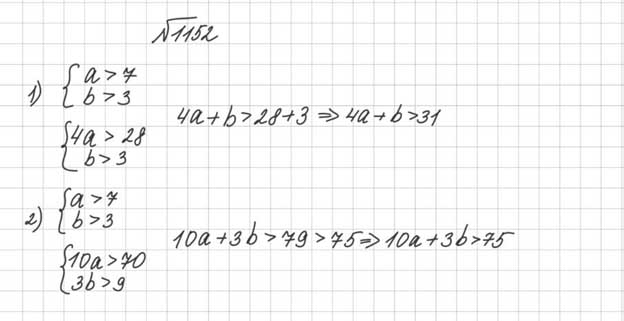 №1152
1) { a > 7
{ b > 3
{ 4a > 28
{ b > 3
4a + b > 28 + 3 ⇒ 4a + b > 31
2) { a > 7
{ b > 3
{ 10a > 70
{ 3b > 9
10a + 3b > 79 > 75 ⇒ 10a + 3b > 75